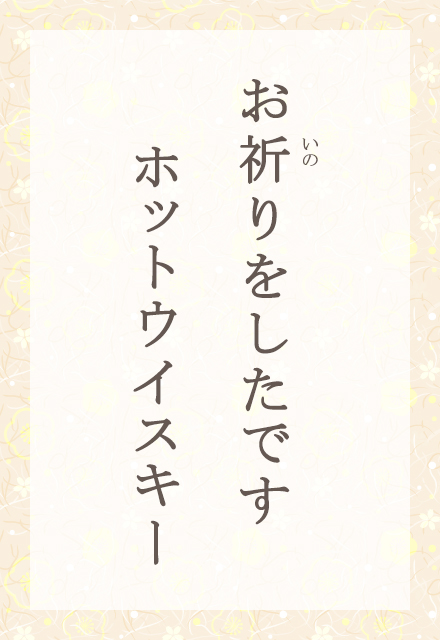 お祈りをしたです
いの
ホットウイスキー